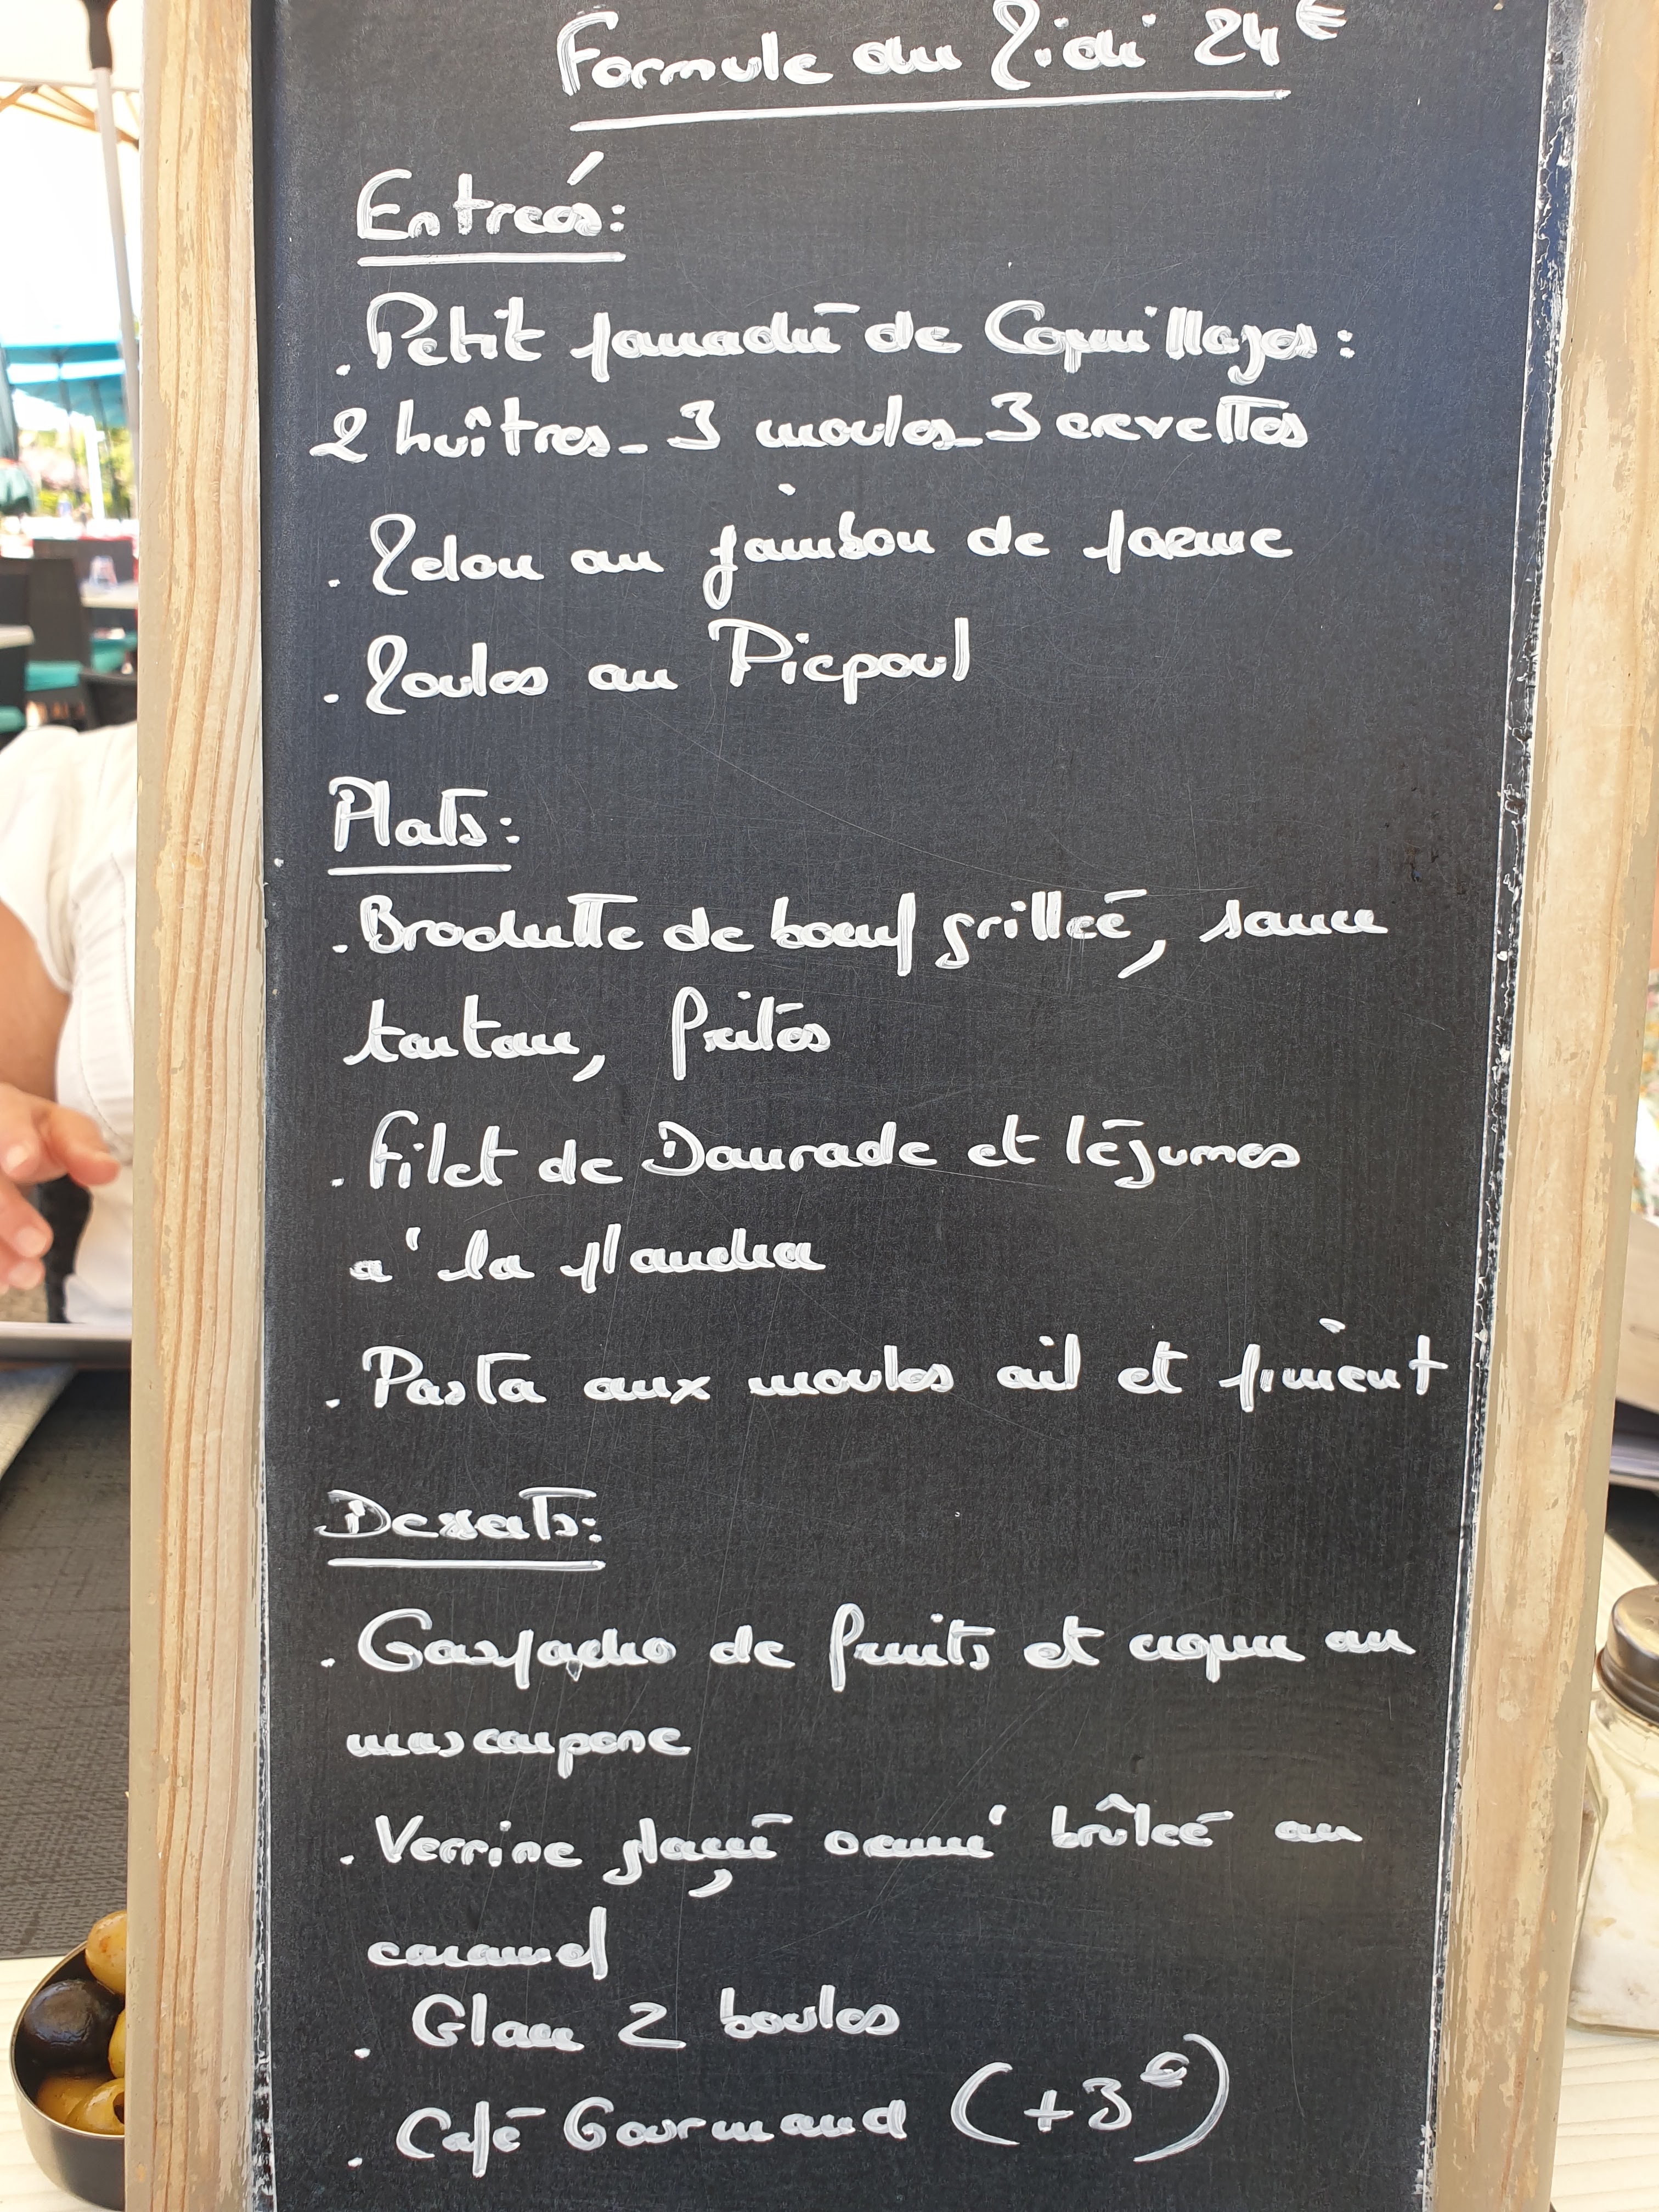 Formule du Midi 24€
Entrées:
. Petit panaché de Coquillages :
2 huîtres - 3 moules - 3 crevettes
. Melon au jambon de parme
. Moules au Picpoul
Plats:
. Brochette de boeuf grillée, sauce
tartare, frites
. Filet de Daurade et légumes
à la plancha
. Pasta aux moules ail et piment
Desserts:
. Gaspacho de fruits et crème au
mascarpone
. Verrine glaçée crème brûlée au
caramel
. Glace 2 boules
. Café Gourmand (+3€)